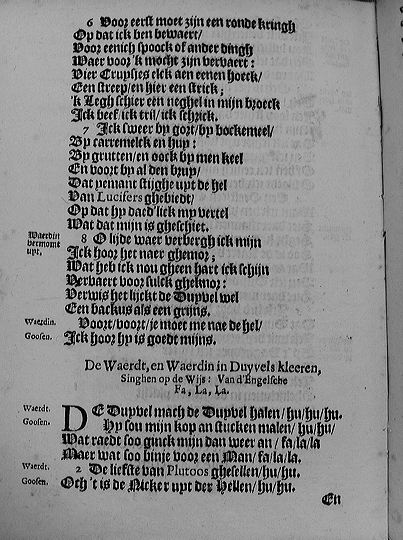 6 Voor eerst moet zijn een ronde kringh
Op dat ick ben bewaert/
Voor eenich spoock of ander dingh
Waer voor 'k mocht zijn vervaert:
Vier Cruysjes elck aen eenen hoeck/
Een streep/en hier een strick;
'k Legh schier een neghel in mijn broeck
Ick beef/ick tril/ick schrick.
7 Ick sweer by gort/by bockemeel/
By carremelck en huy:
By grutten/en oock by men keel
En voort by al den bruy/
Dat yemant stijghe uyt de hel
Van Lucifers ghebiedt/
Op dat hy daed'lick my vertel
Wat dat mijn is gheschiet.
Waerdin vermomt uyt.
8 O lijde waer verbergh ick mijn
Ick hoor het naer ghemor;
Wat heb ick nou gheen hart ick schijn
Vervaert voor sulck gheknor:
Verwis het lijckt de Duyvel wel
Een backus als een grijns.
Waerdin. Voort/voort/je moet me nae de hel/
Goosen. Ick hoor hy is goedt mijns.
De Waerdt, en Waerdin in Duyvels kleeren,
Singhen op de Wijs: Van d'Engelsche
Fa, La, La.
Waerdt. DE Duyvel mach de Duyvel halen/hu/hu/hu.
Goosen. Hy sou mijn kop an stucken malen/hu/hu/
Wat raedt soo ginck mijn dan weer an/fa/la/la
Maer wat soo binje voor een Man/fa/la/la.
Waerdt. 2 De liefste van Plutoos ghesellen/hu/hu.
Goosen. Och 't is de Nicker uyt der Hellen/hu/hu.
En